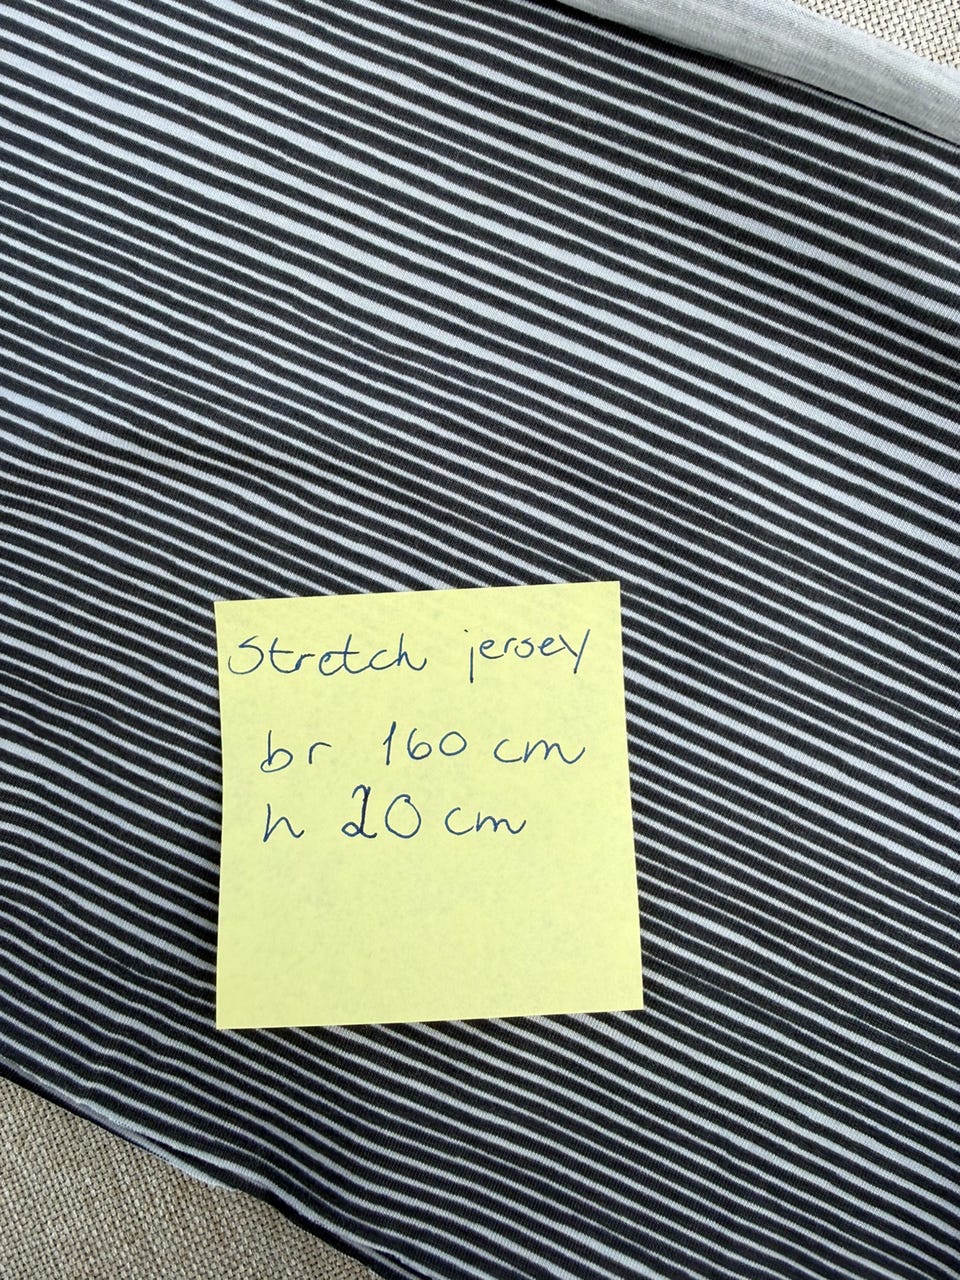 Stretch jersey
br 160 cm
h 20 cm